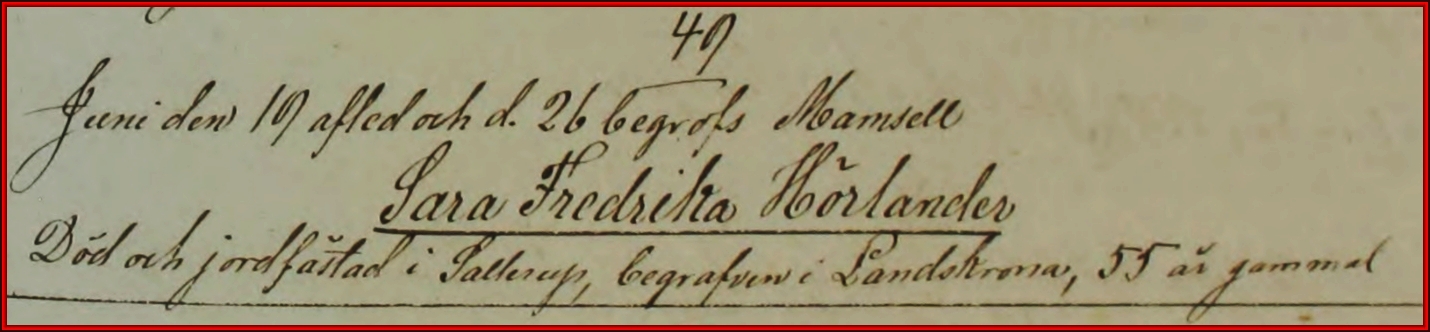 49
Juni den 19 afled och d. 26 begrofs Mamsell
Sara Fredrika Hörlander
Död och jordfästad i Sallerup, begrafven i Landskrona, 55 år gammal